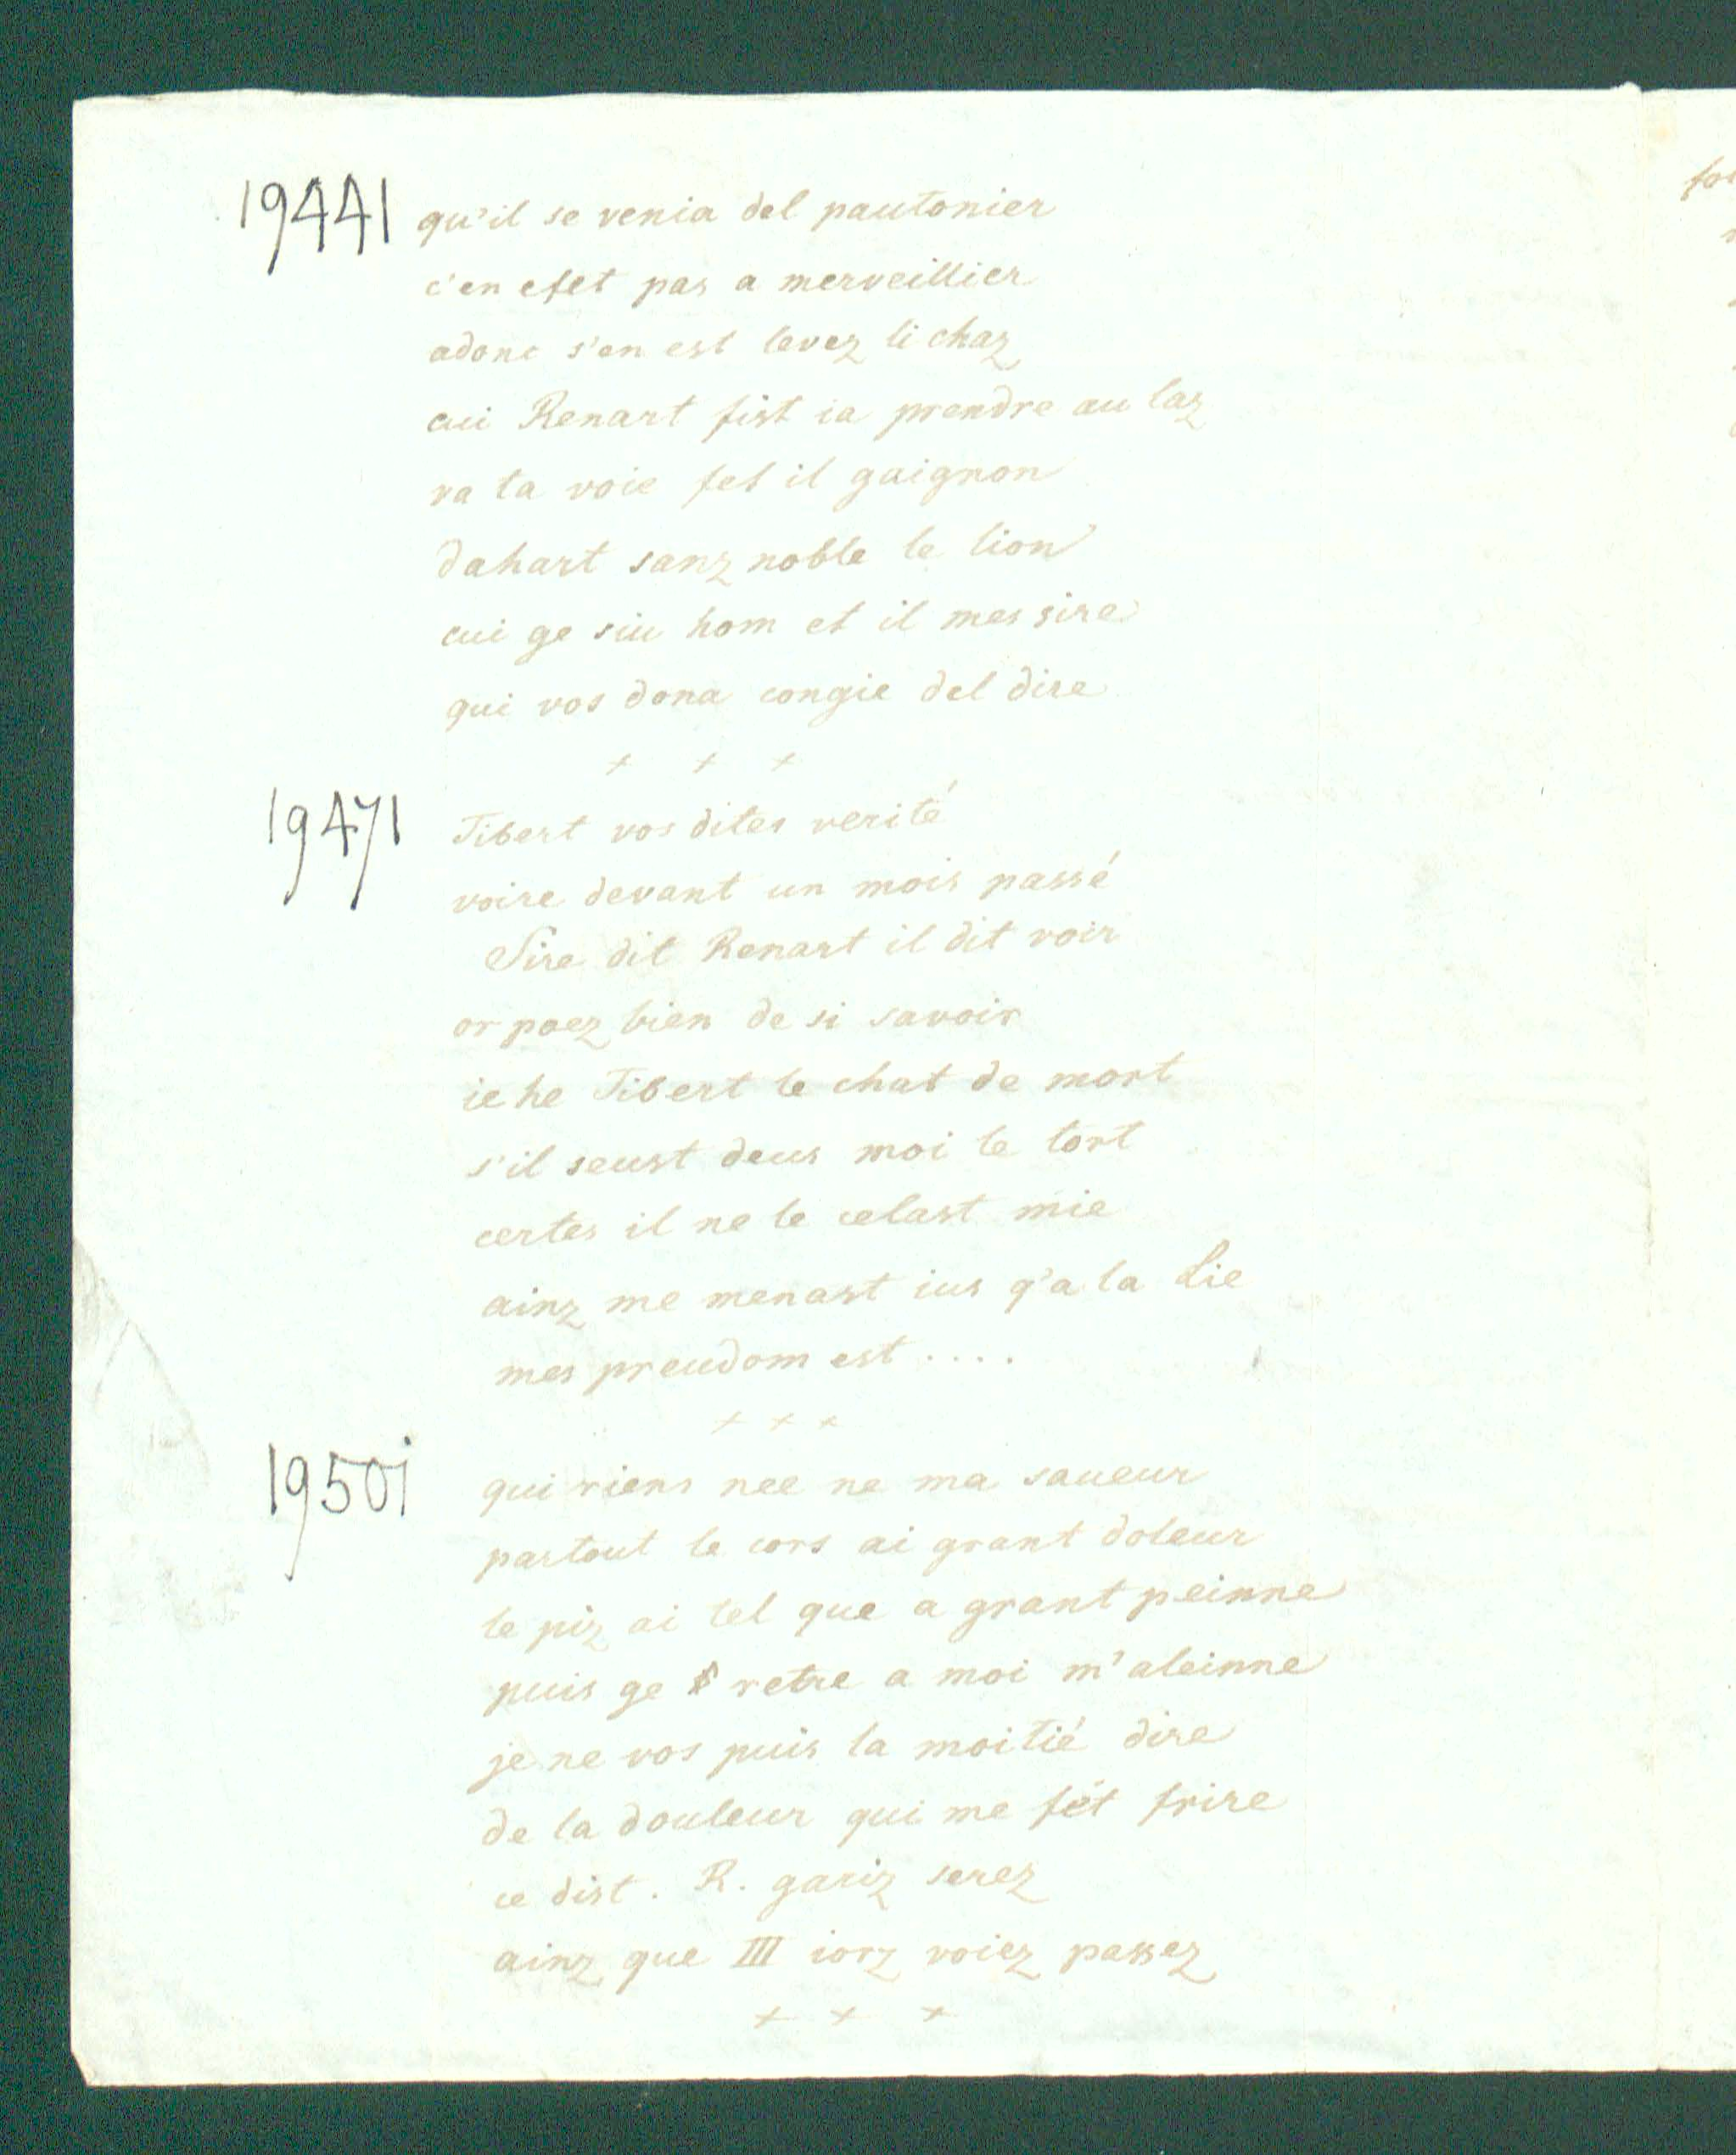 19441 qu'il se venia del pautonier
c'en efet pas a merveillier
adonc s'en est levez li chaz
cui Renart fist ia prendre au laz
va ta voie fet il gaignon
dahart sanz noble le lion
cui ge siu hom et il mes sire
qui vos dona congie del dire
+ + +
19471 Tibert vos dites verité
voire devant un mois passé
Sire dit Renart il dit voir
or poez bien de si savoir
ie he Tibert le chat de mort
s'il seust deus moi le tort
certes il ne le celast mie
ainz me menast ius q'a la Lie
mes preudom est ....
+ + +
19501 qui riens nee ne ma saueur
partout le cors ai grant doleur
le piz ai tel que a grant peinne
puis ge retre a moi m'aleinne
je ne vos puis la moitié dire
de la douleur qui me fét frire
ce dist . R. gariz serez
ainz que III iorz voiez passez
+ + +